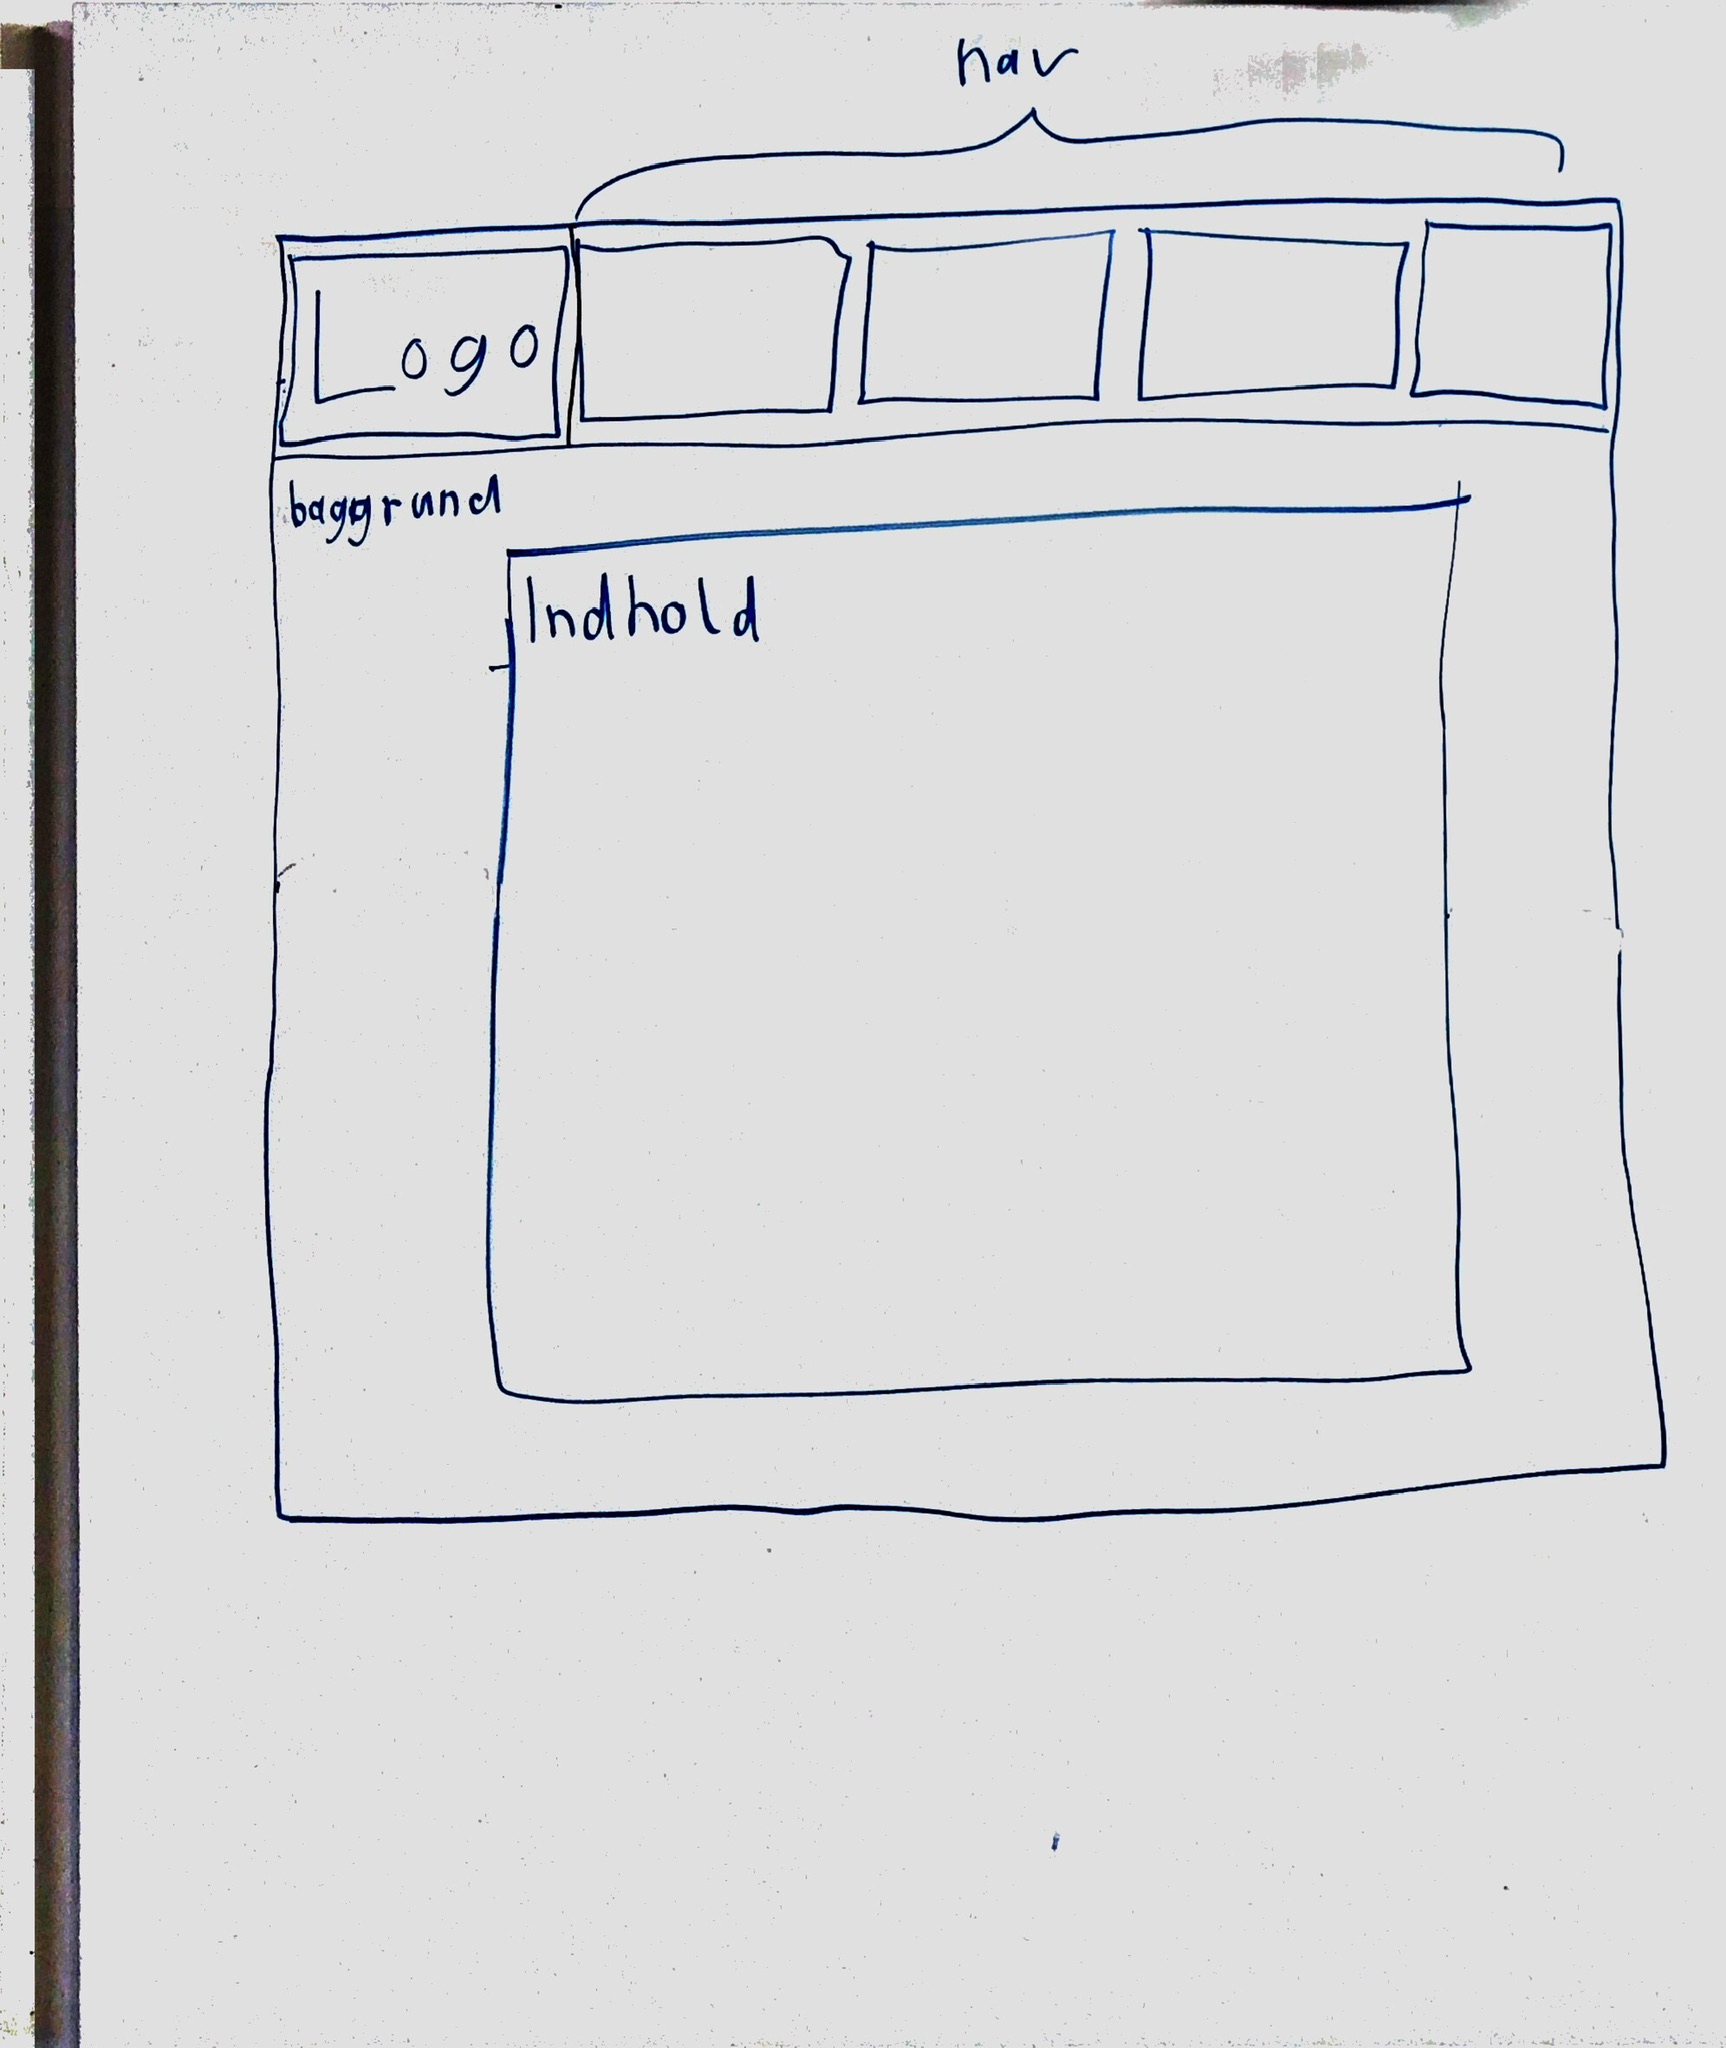 nav
Logo
baggrund
Indhold